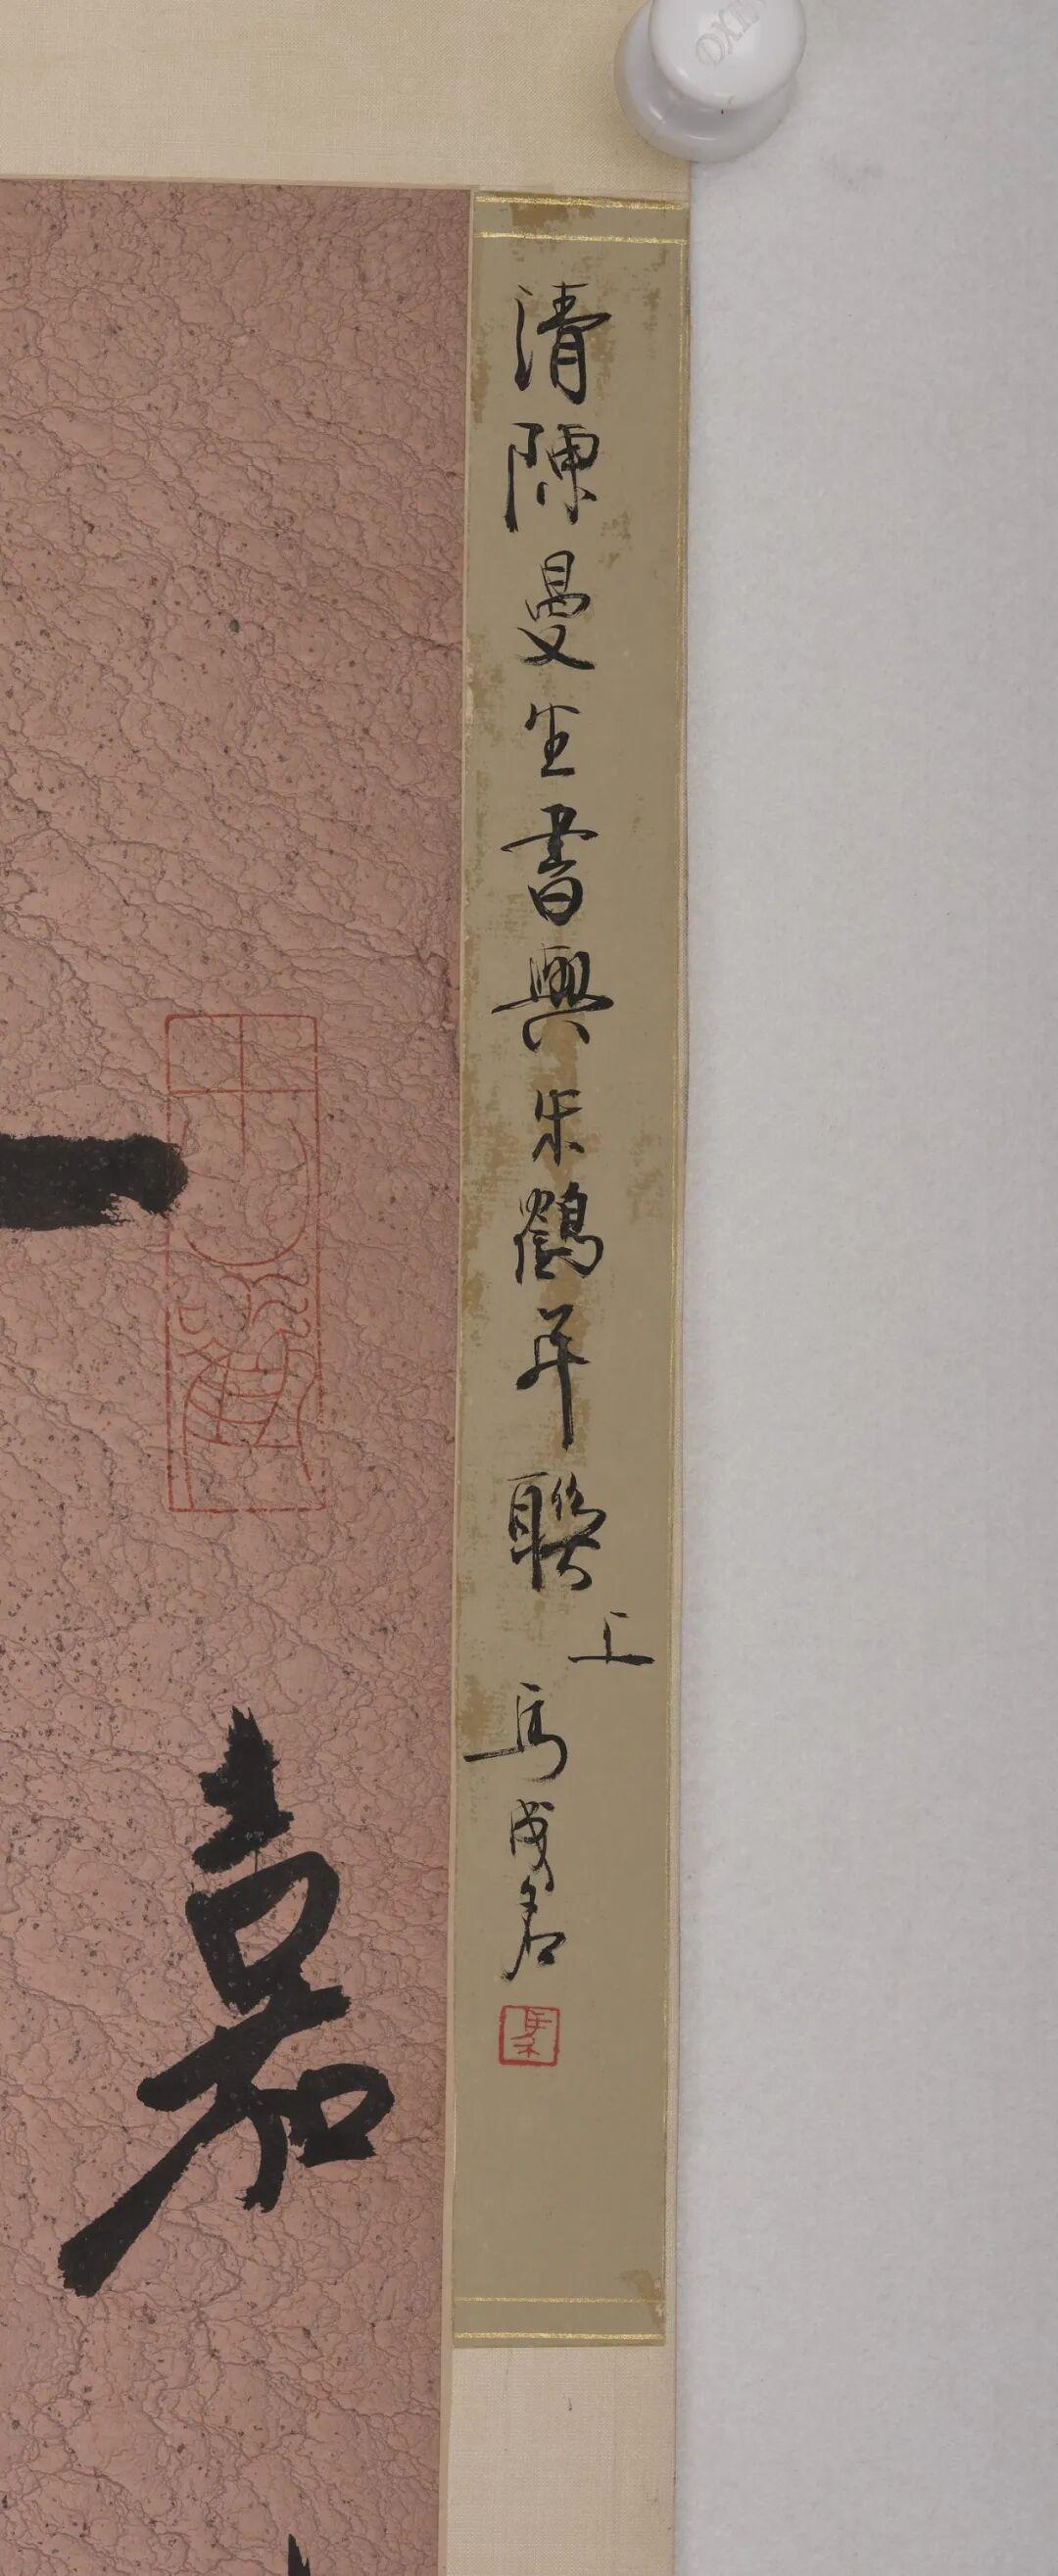 清陳曼生書與朱鶴年聯 上 馬成名
嘉